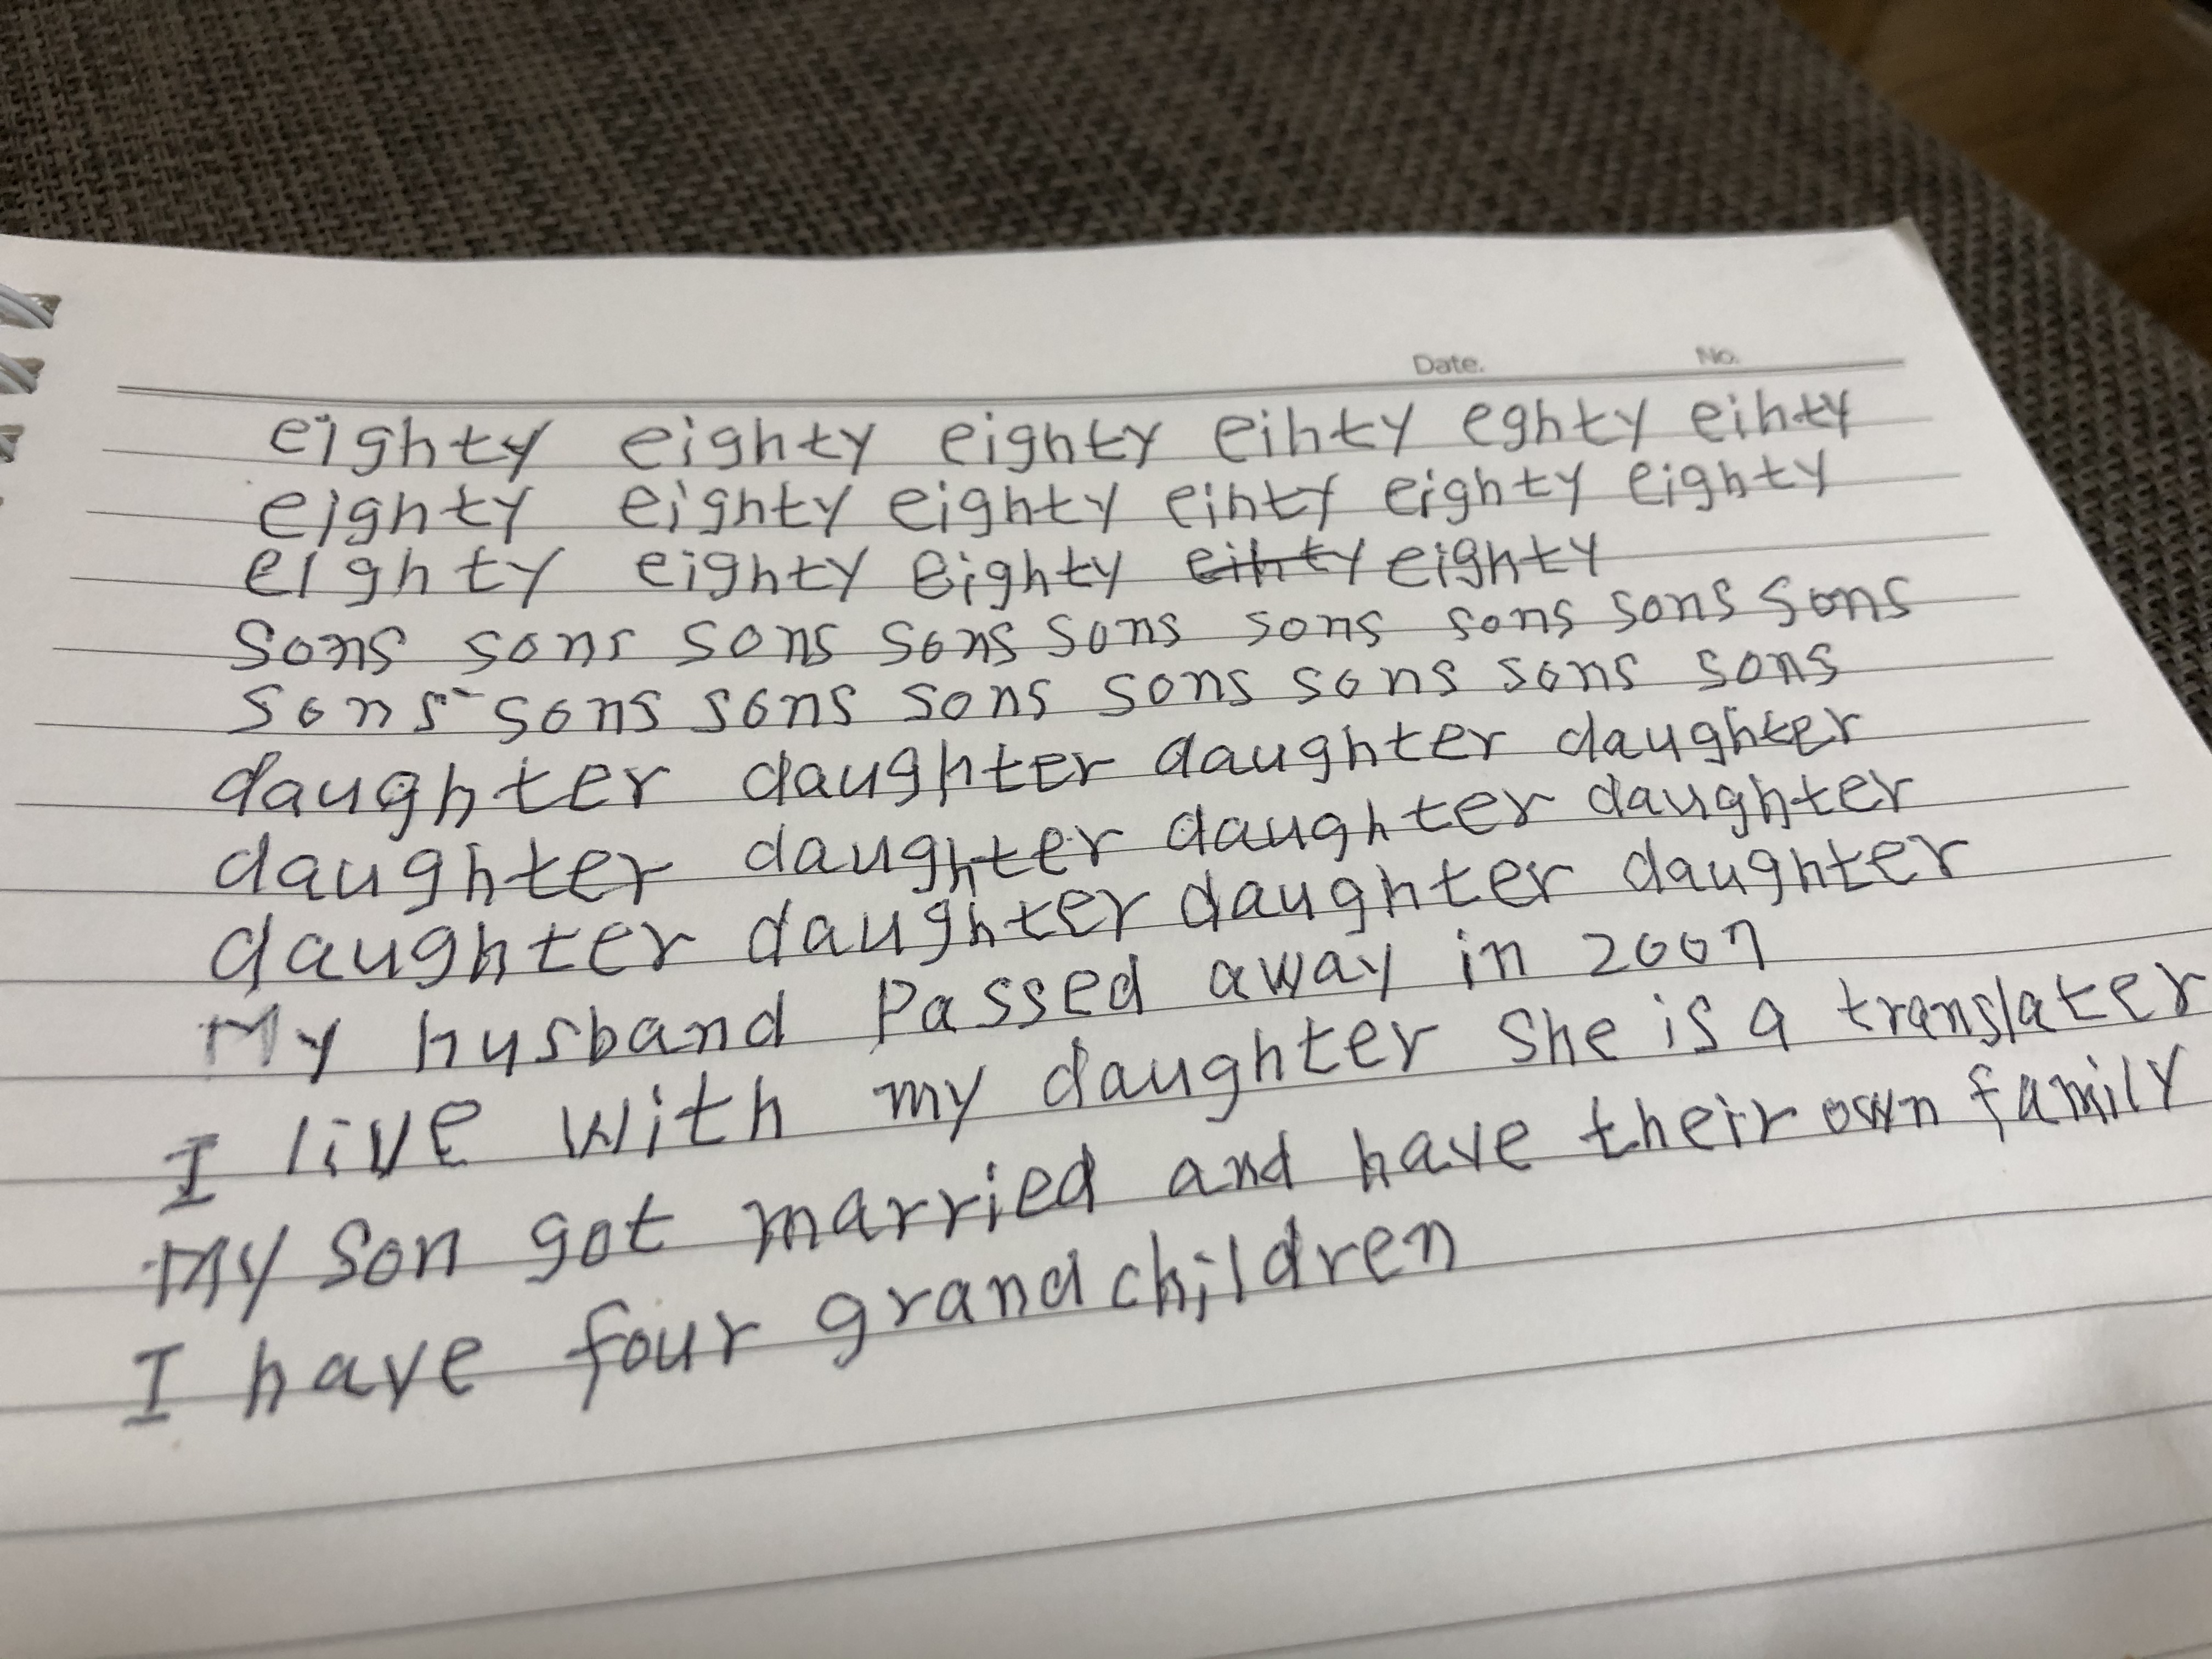 Date. No.
eighty eighty eighty eihty eghty eihty
eighty eighty eighty eihty eighty eighty
eighty eighty eighty eihty eighty
sons sons sons sons sons sons sons sons sons
sons sons sons sons sons sons sons sons
daughter daughter daughter daughter
daughter daughter daughter daughter
daughter daughter daughter daughter
My husband Passed away in 2007
I live with my daughter She is a translater
My son got married and have their own family
I have four grandchildren